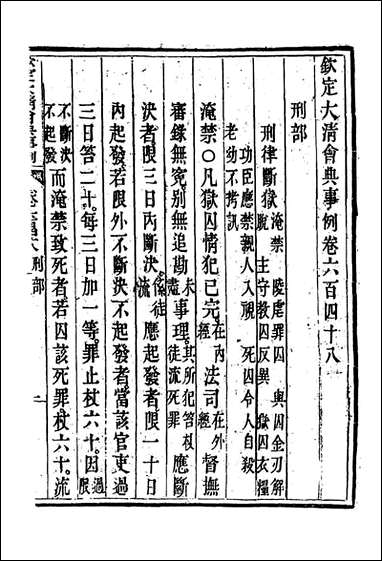 欽定大清會典事例卷六百四十八
刑部
刑律斷獄 淹禁 陵虐罪囚 與囚金刃解
脫 主守教囚反異 獄囚衣糧
功臣應禁親人入視 死囚令人自殺
老幼不拷訊
淹禁〇凡獄囚情犯已完在內經法司在外經督撫
審錄無冤別無追勘未盡事理其所犯笞杖徒流死罪應斷
決者限三日內斷決係徒流應起發者限一十日
內起發若限外不斷決不起發者當該官吏過
三日笞二十每三日加一等罪止杖六十因過限
不斷決不起發而淹禁致死者若囚該死罪杖六十流
刑部